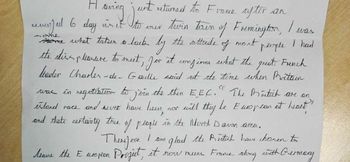 Having just returned to France after an
6 day visit to our twin town of Farmington, I was
what taken aback by the attitude of most people I had
the displeasure to meet, for it confirms what the great French
leader Charles-de-Gaulle said at the time when Brittain
was in negotiation to join the then E.E.C. "The British are an
island race and never have been, nor will they be European at heart"
and thats certainly true of people in the North Devon area.
Therefore I am glad the British have chosen to
leave the European Project, it now means France along with Germany